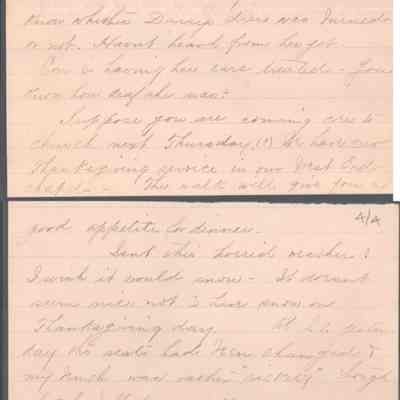 know whether Dannys dress was burned
or not. Havnt heard from her yet.
Con is having her ears treated - You
know how deaf she was?
Suppose you are coming over to
church next Thursday (?) We have our
Thanksgiving service in our West End
chapel - The walk will give you a
4/4
good appetite for dinner.
Isnt this horrid weather?
I wish it would snow - It doesnt
seem nice not to have snow on
Thanksgiving day. At S.S.
day the seats had been changed &
my bench was rather "rickety"